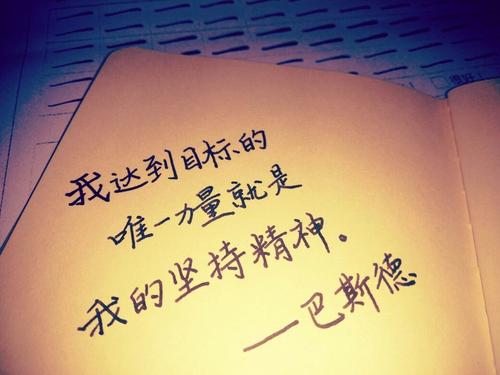 我达到目标的
唯一力量就是
我的坚持精神。
—巴斯德